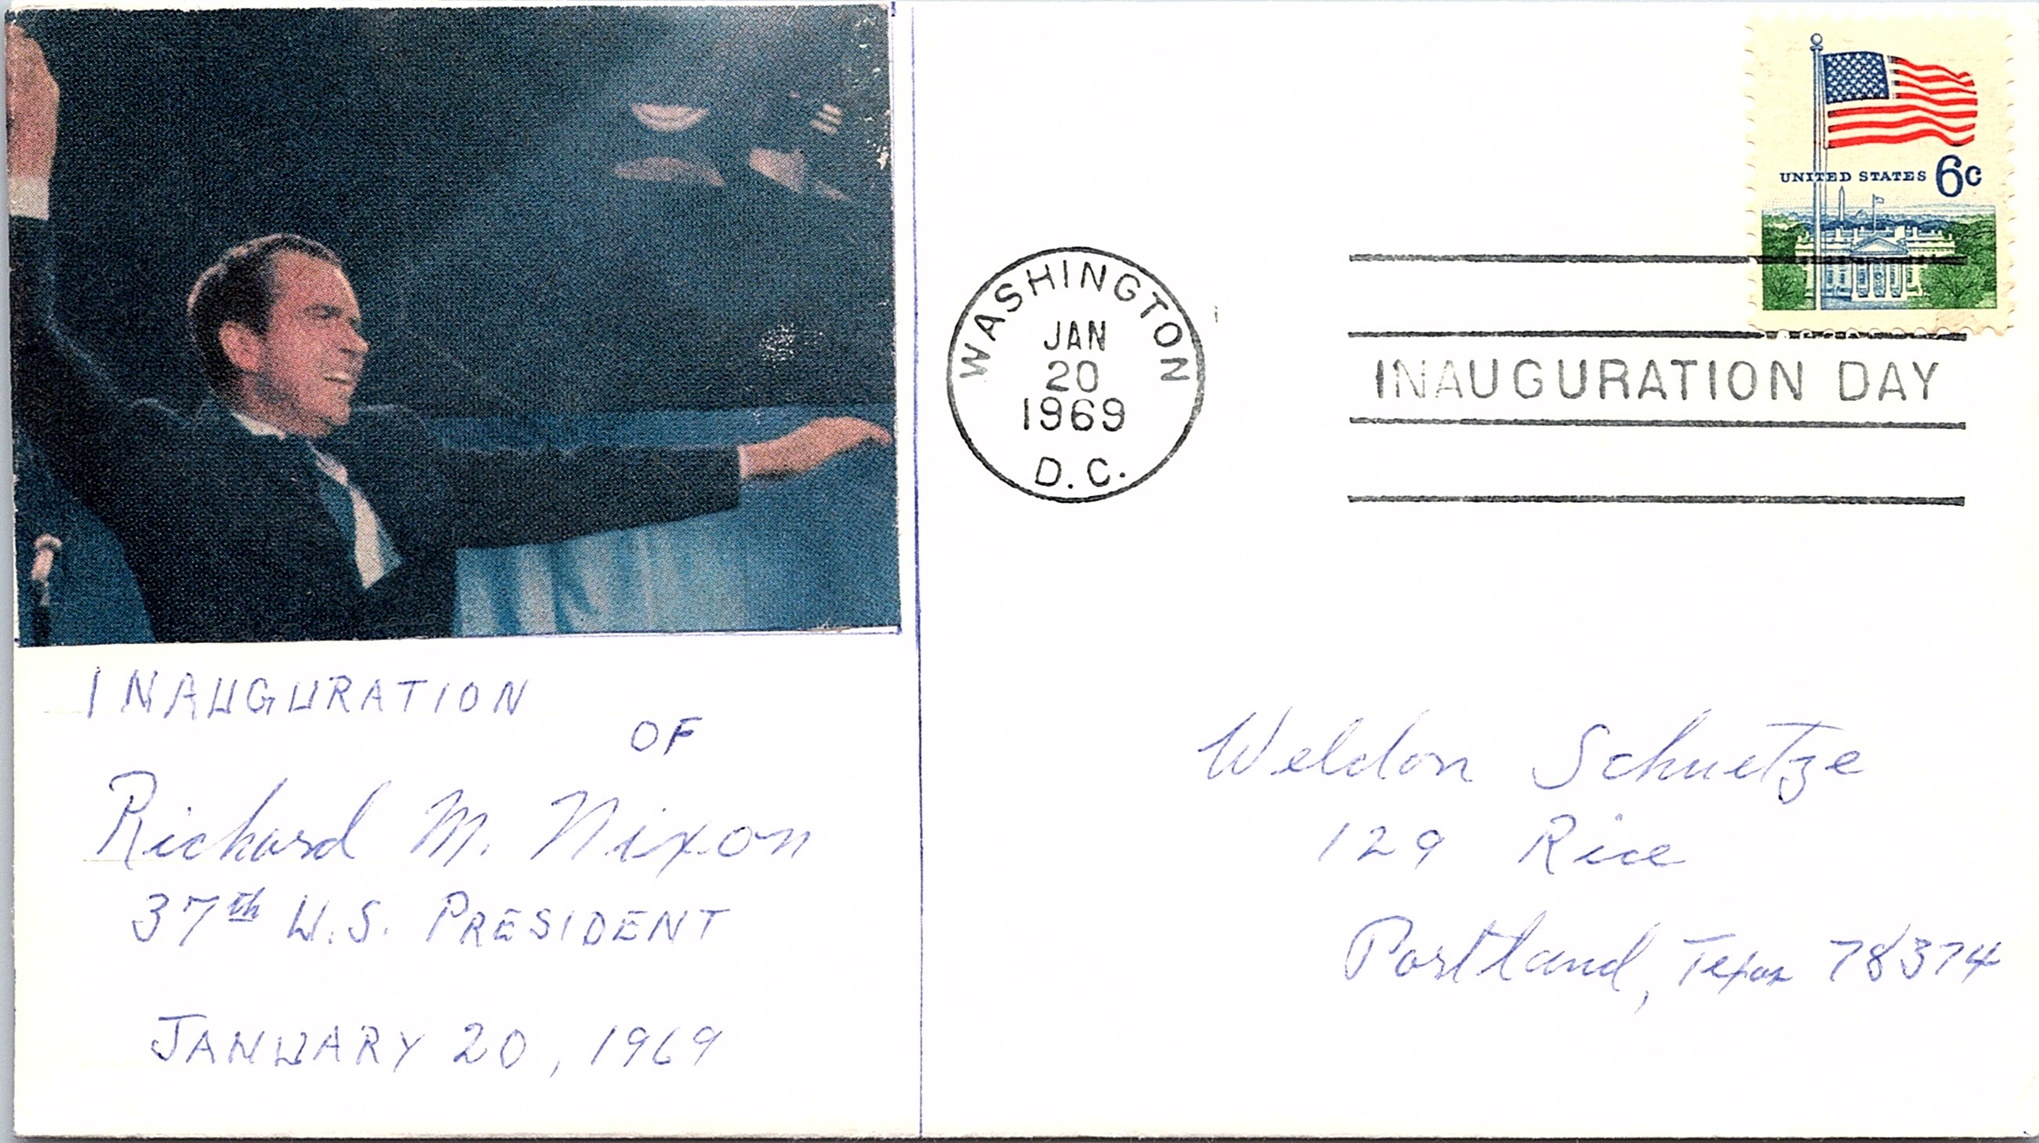 INAUGURATION
OF
Richard M. Nixon
37th U.S. PRESIDENT
JANUARY 20, 1969
WASHINGTON
JAN
20
1969
D.C.
UNITED STATES 6c
INAUGURATION DAY
Weldon Schuetze
129 Rice
Portland, Texas 78374